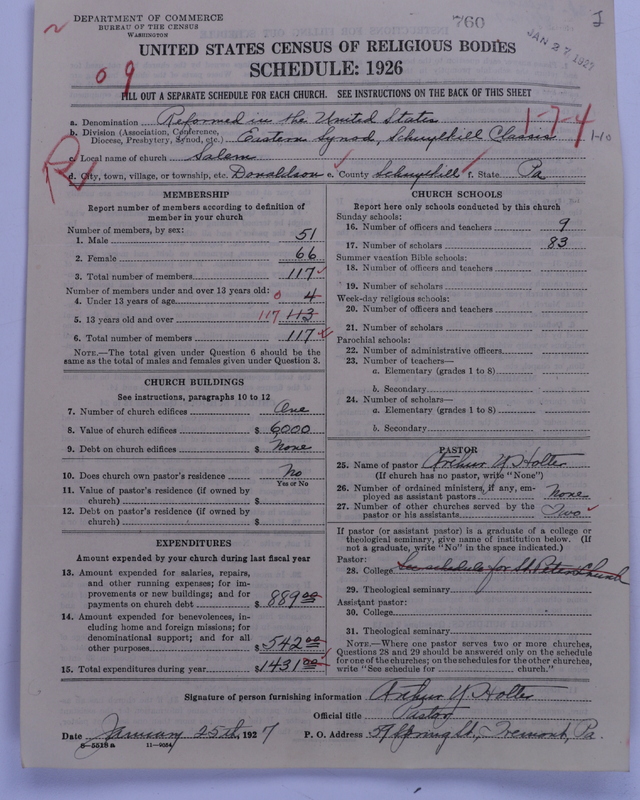 DEPARTMENT OF COMMERCE
BUREAU OF THE CENSUS
WASHINGTON
760
I
JAN 27 1927
UNITED STATES CENSUS OF RELIGIOUS BODIES
SCHEDULE: 1926
0 9
FILL OUT A SEPARATE SCHEDULE FOR EACH CHURCH. SEE INSTRUCTIONS ON THE BACK OF THIS SHEET
a. Denomination Reformed in the United States 1-7-4
b. Division (Association, Conference, Diocese, Presbytery, Synod, etc.) Eastern Synod, Schuylkill Classis 1-10
c. Local name of church Salem
d. City, town, village, or township, etc. Donaldson e. County Schuylkill f. State Pa
MEMBERSHIP
Report number of members according to definition of
member in your church
Number of members, by sex:
1. Male 51
2. Female 66
3. Total number of members 117
Number of members under and over 13 years old:
4. Under 13 years of age 0 4
5. 13 years old and over 117 113
6. Total number of members 117
NOTE.—The total given under Question 6 should be the
same as the total of males and females given under Question 3.
CHURCH BUILDINGS
See instructions, paragraphs 10 to 12
7. Number of church edifices One
8. Value of church edifices $ 6000
9. Debt on church edifices $ None
10. Does church own pastor's residence? No
Yes or No
11. Value of pastor's residence (if owned by
church) $
12. Debt on pastor's residence (if owned by
church) $
EXPENDITURES
Amount expended by your church during last fiscal year
13. Amount expended for salaries, repairs,
and other running expenses; for im-
provements or new buildings; and for
payments on church debt $ 889 00
14. Amount expended for benevolences, in-
cluding home and foreign missions; for
denominational support; and for all
other purposes $ 542 00
15. Total expenditures during year $ 1431 00
CHURCH SCHOOLS
Report here only schools conducted by this church
Sunday schools:
16. Number of officers and teachers 9
17. Number of scholars 83
Summer vacation Bible schools:
18. Number of officers and teachers
19. Number of scholars
Week-day religious schools:
20. Number of officers and teachers
21. Number of scholars
Parochial schools:
22. Number of administrative officers
23. Number of teachers—
a. Elementary (grades 1 to 8)
b. Secondary
24. Number of scholars—
a. Elementary (grades 1 to 8)
b. Secondary
PASTOR
25. Name of pastor Arthur Y. Holter
(If church has no pastor, write "None")
26. Number of ordained ministers, if any, em-
ployed as assistant pastors None
27. Number of other churches served by the
pastor or his assistants Two
If pastor (or assistant pastor) is a graduate of a college or
theological seminary, give name of institution below. (If
not a graduate, write "No" in the space indicated.)
Pastor:
28. College See schedule for St. Peters Church
29. Theological seminary
Assistant pastor:
30. College
31. Theological seminary
NOTE.—Where one pastor serves two or more churches,
Questions 28 and 29 should be answered only on the schedule
for one of the churches; on the schedules for the other churches,
write "See schedule for church."
Signature of person furnishing information Arthur Y. Holter
Official title Pastor
Date January 25th, 1927 P. O. Address 59 Spring St., Tremont, Pa.
8-5518a 11-9054